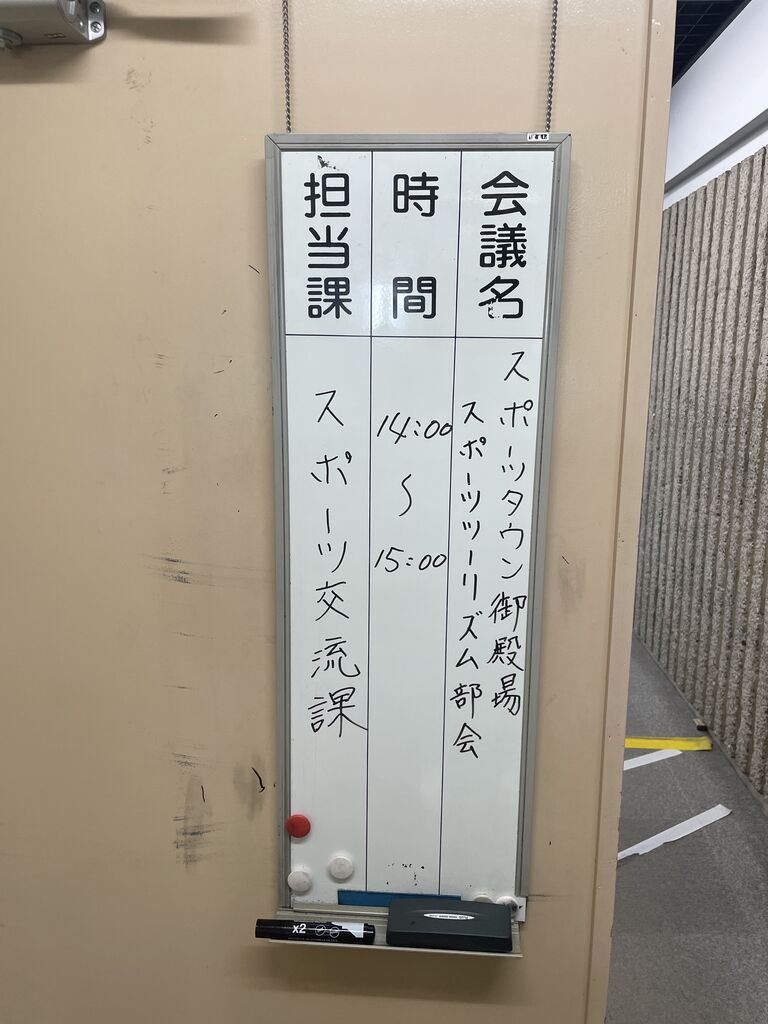 会議名
スポーツタウン御殿場
スポーツツーリズム部会
時間
14:00
〜
15:00
担当課
スポーツ交流課
x2